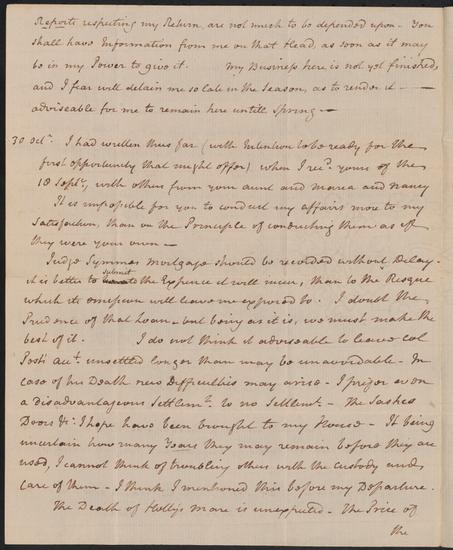 Reports respecting my Return, are not much to be depended upon – You
shall have Information from me on that Head, as soon as it may
be in my Power to give it. My Business here is not yet finished,
and I fear will detain me so late in the Season, as to render it
adviseable for me to remain here untill Spring –
30 Octr. I had written thus far (with Intention to be ready for the
first opportunity that might offer) when I recd. yours of the
18 Sepr., with others from your aunt and Maria and Nancy
It is impossible for you to conduct my affairs more to my
Satisfaction, than on the Principle of conducting them as if
they were your own –
Judge Symmes Mortgage should be recorded without Delay –
it is better to submit to the Expence it will incur, than to the Resque
which its omission will leave me exposed to. I doubt the
Prudence of that Loan – but being as it is, we must make the
best of it. I do not think it adviseable to leave Col
Posts act. unsettled longer than may be unavoidable – In
case of his Death new Difficulties may arise – I prefer even
a disadvantageous Settlemt. to no Settlemt. – The Sashes
Doors &c. I hope have been brought to my House – It being
uncertain how many Years they may remain before they are
used, I cannot think of troubling others with the Custody and
Care of them – I think I mentioned this before my Departure.
The Death of Hollys Mare is unexpected – the Price of
the